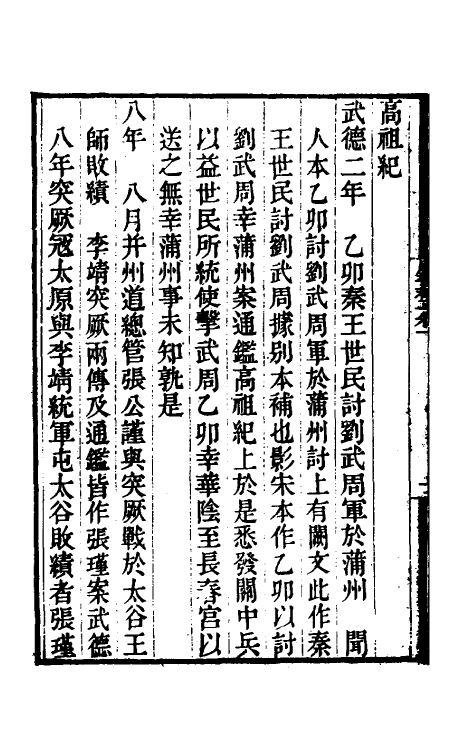 高祖紀
武德二年　乙卯秦王世民討劉武周軍於蒲州　聞
人本乙卯討劉武周軍於蒲州討上有闕文此作秦
王世民討劉武周據別本補也影宋本作乙卯以討
劉武周幸蒲州案通鑑高祖紀上於是悉發關中兵
以益世民所統使擊武周乙卯幸華陰至長春宮以
送之無幸蒲州事未知孰是
八年　八月并州道總管張公謹與突厥戰於太谷王
師敗績　李靖突厥兩傳及通鑑皆作張瑾案武德
八年突厥冦太原與李靖統軍屯太谷敗績者張瑾